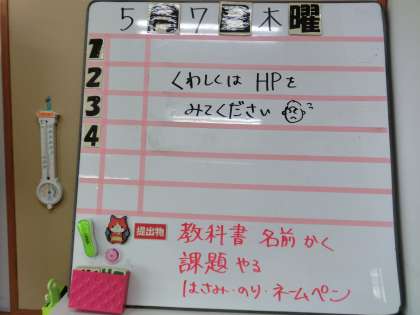 5月7日木曜
1
2 くわしくは HPを
3 みてください
4
提出物 教科書 名前 かく
課題 やる
はさみ・のり・ネームペン